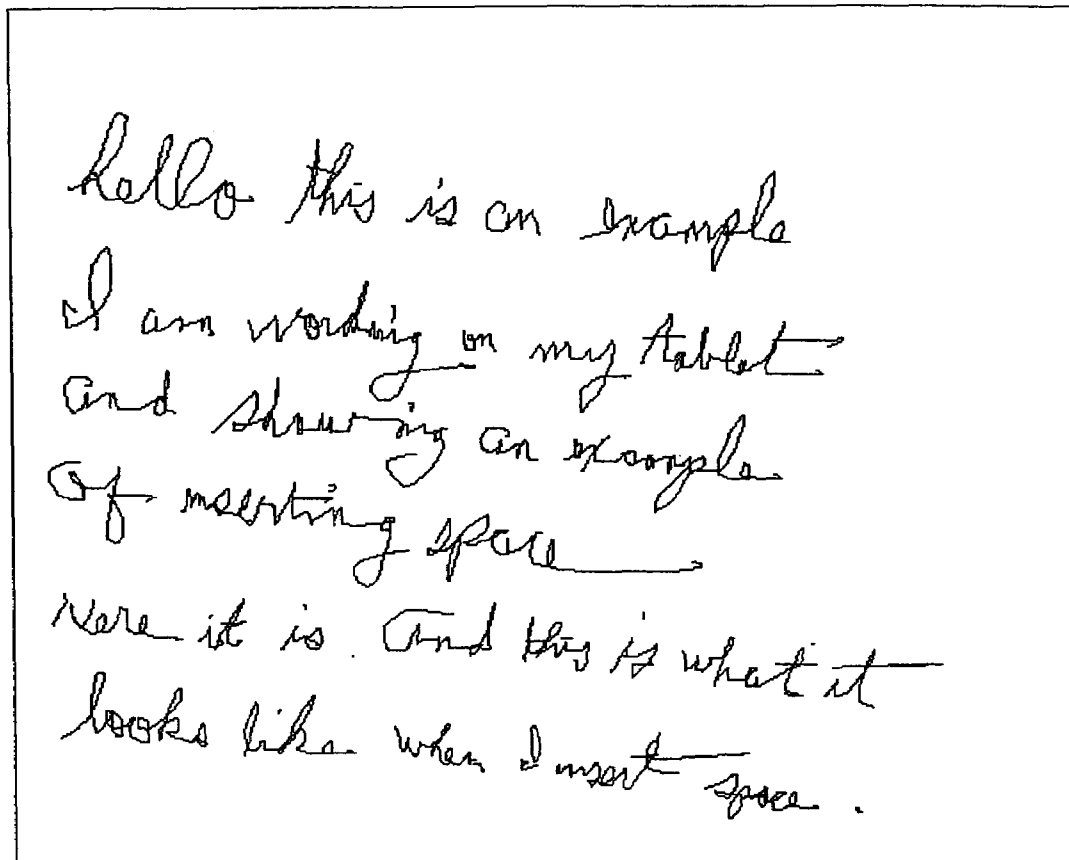 hello this is an example
I am wording on my tablet
and showing an example
of inserting space
Here it is. And this is what it
looks like when I insert space.